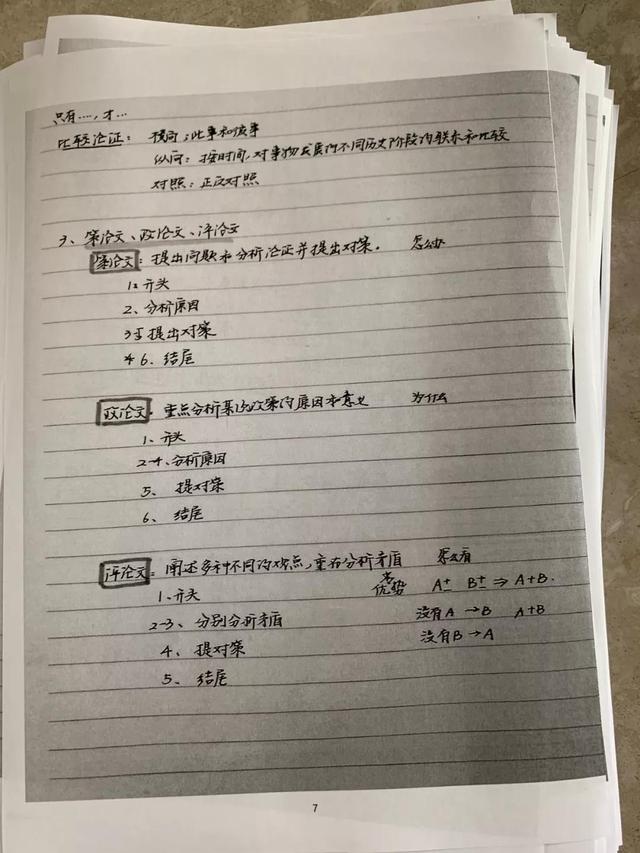 只有……，才…
比较论证： 横向：此事和彼事
纵向：按时间，对事物发展的不同历史阶段的联系和比较
对照：正反对照
3、策论文、政论文、评论文
策论文：提出问题来分析论证并提出对策。 怎么办
1、开头
2、分析原因
3-5 提出对策
6、结尾
政论文：重点分析某项政策的原因和意义 为什么
1、开头
2-4、分析原因
5、提对策
6、结尾
评论文：阐述多种不同的观点，重在分析矛盾 怎么看
1、开头 优势 A+ B+ ⇒ A+B.
2-3、分别分析矛盾 没有A → B A+B
4、提对策 没有B → A
5、结尾
7